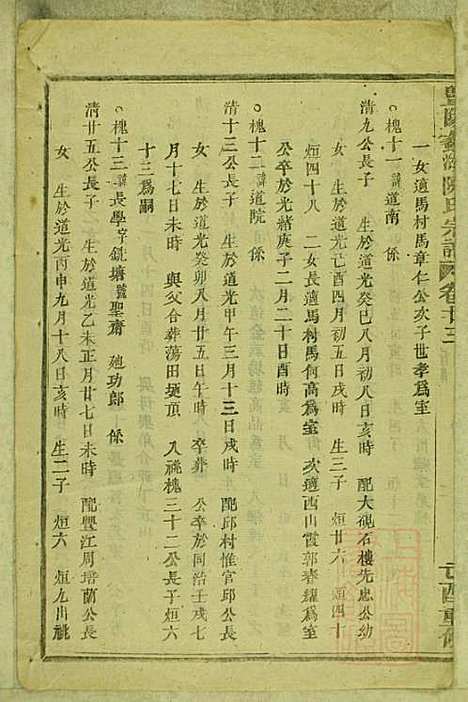 豐陽 陳氏宗譜 卷廿三
一女適馬村馬章仁公次子世孝爲室
槐十一 諱道南 係
清九公長子 生於道光癸巳八月初八日亥時 配大硯石樓先忠公幼
女 生於道光己酉四月初五日戌時 生三子 烜廿六 烜四十
烜四十八 二女長適馬村馬何高爲室 次適西山霞郭春鑵爲室
公卒於光緒庚子二月二十日酉時
槐十二 諱道院 係
清十二公長子 生於道光甲午三月十三日戌時 配邱村惟官邱公長
女 生於道光癸卯八月廿五日午時 卒葬 公卒於同治壬戌七
月十七日未時 與父合葬蕩田埂頂 入祧槐三十二公長子烜六
十三爲嗣
槐十三 諱長學 字銑塘 號聖齋 廸功郎 係
清廿五公長子 生於道光乙未正月廿七日未時 配豐江周培蘭公長
女 生於道光丙申九月十八日亥時 生二子 烜六 烜九出祧